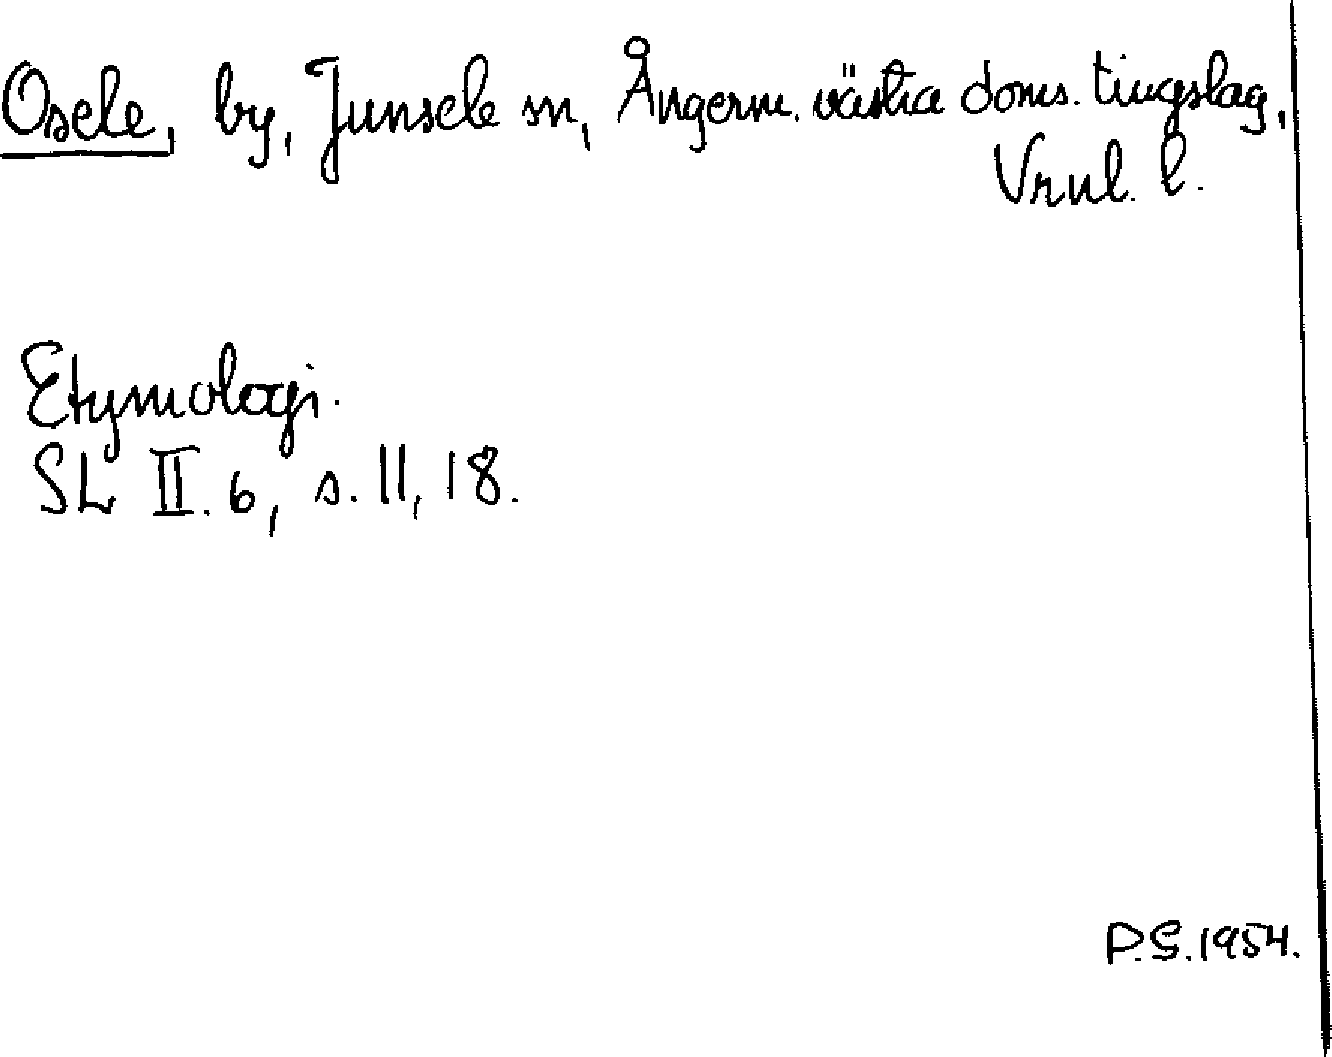 Osele, by, Junsele sn, Ångerm. västra doms. tingslag,
Vrnl. l.
Etymologi.
SL II. 6, s. 11, 18.
P.S. 1954.